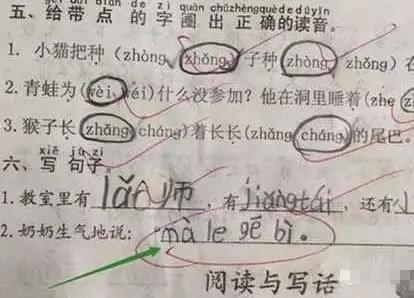 五、给带点的字圈出正确的读音。
1. 小猫把种（zhòng zhǒng）子种（zhòng zhǒng）在
2. 青蛙为（wèi wéi）什么没参加？他在洞里睡着（zhe
3. 猴子长（zhǎng cháng）着长长（zhǎng cháng）的尾巴。
xiě jù zi
六、写句子。
1. 教室里有 lǎo师 ，有 jiǎngtái ，还有
2. 奶奶生气地说：mà le gē bì。
阅读与写话